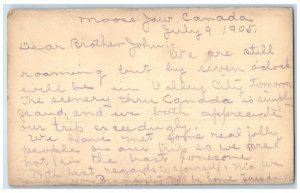 Moose Jaw, Canada
July 9 1905.
Dear Brother John:-
We are still
roaming but by seven oclock
will be in Valley City, tomorrow
The scenery thru Canada is simply
grand, and we both appreciate
our trip exceedingly.
We have met some real jolly
people on our trip so we are
not in the least lonesome
With best regards to yourself & Ma we
will be